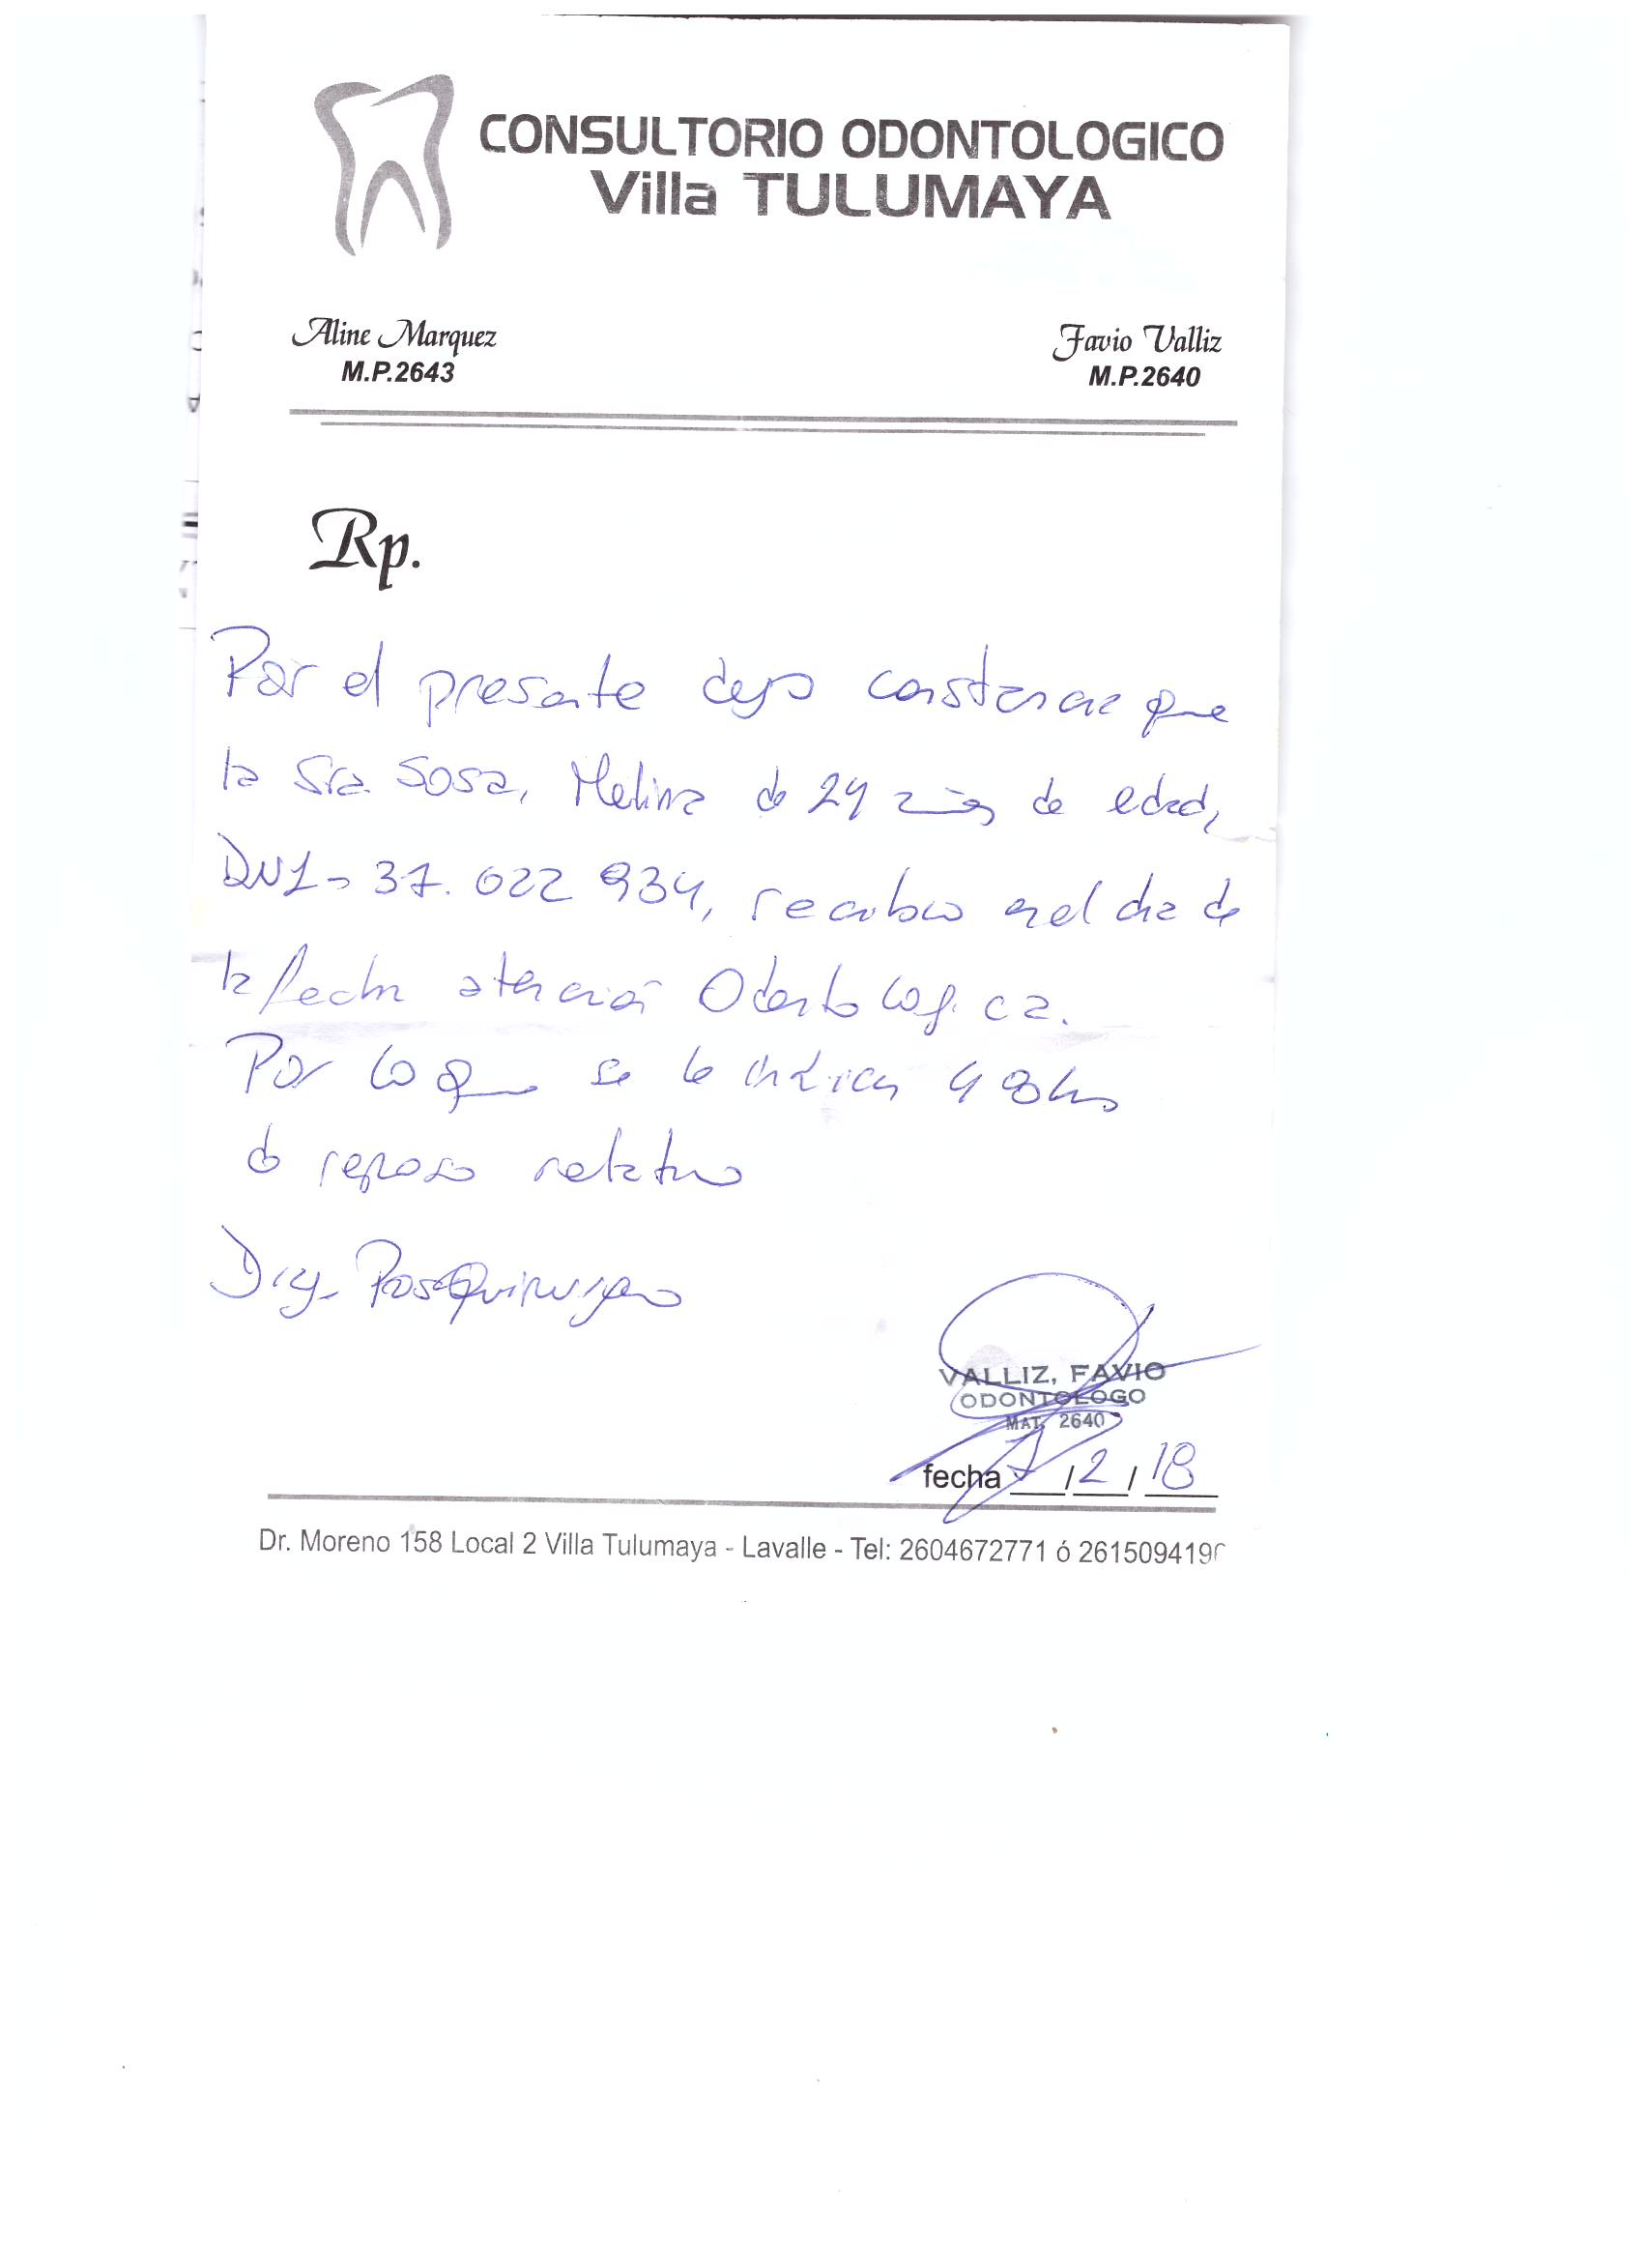 CONSULTORIO ODONTOLOGICO
Villa TULUMAYA
Aline Marquez
M.P.2643
Favio Valliz
M.P.2640
Rp.
Por el presente dejo constancia que
la Sra Sosa, Melina de 24 años de edad,
DNI- 37.022 934, recibio en el dia de
la fecha atención Odontologica.
Por lo que se le indican 48hs
de reposo relativo
Diag- PosQuirurgico
VALLIZ, FAVIO
ODONTOLOGO
MAT. 2640
fecha 7/2/18
Dr. Moreno 158 Local 2 Villa Tulumaya - Lavalle - Tel: 2604672771 ó